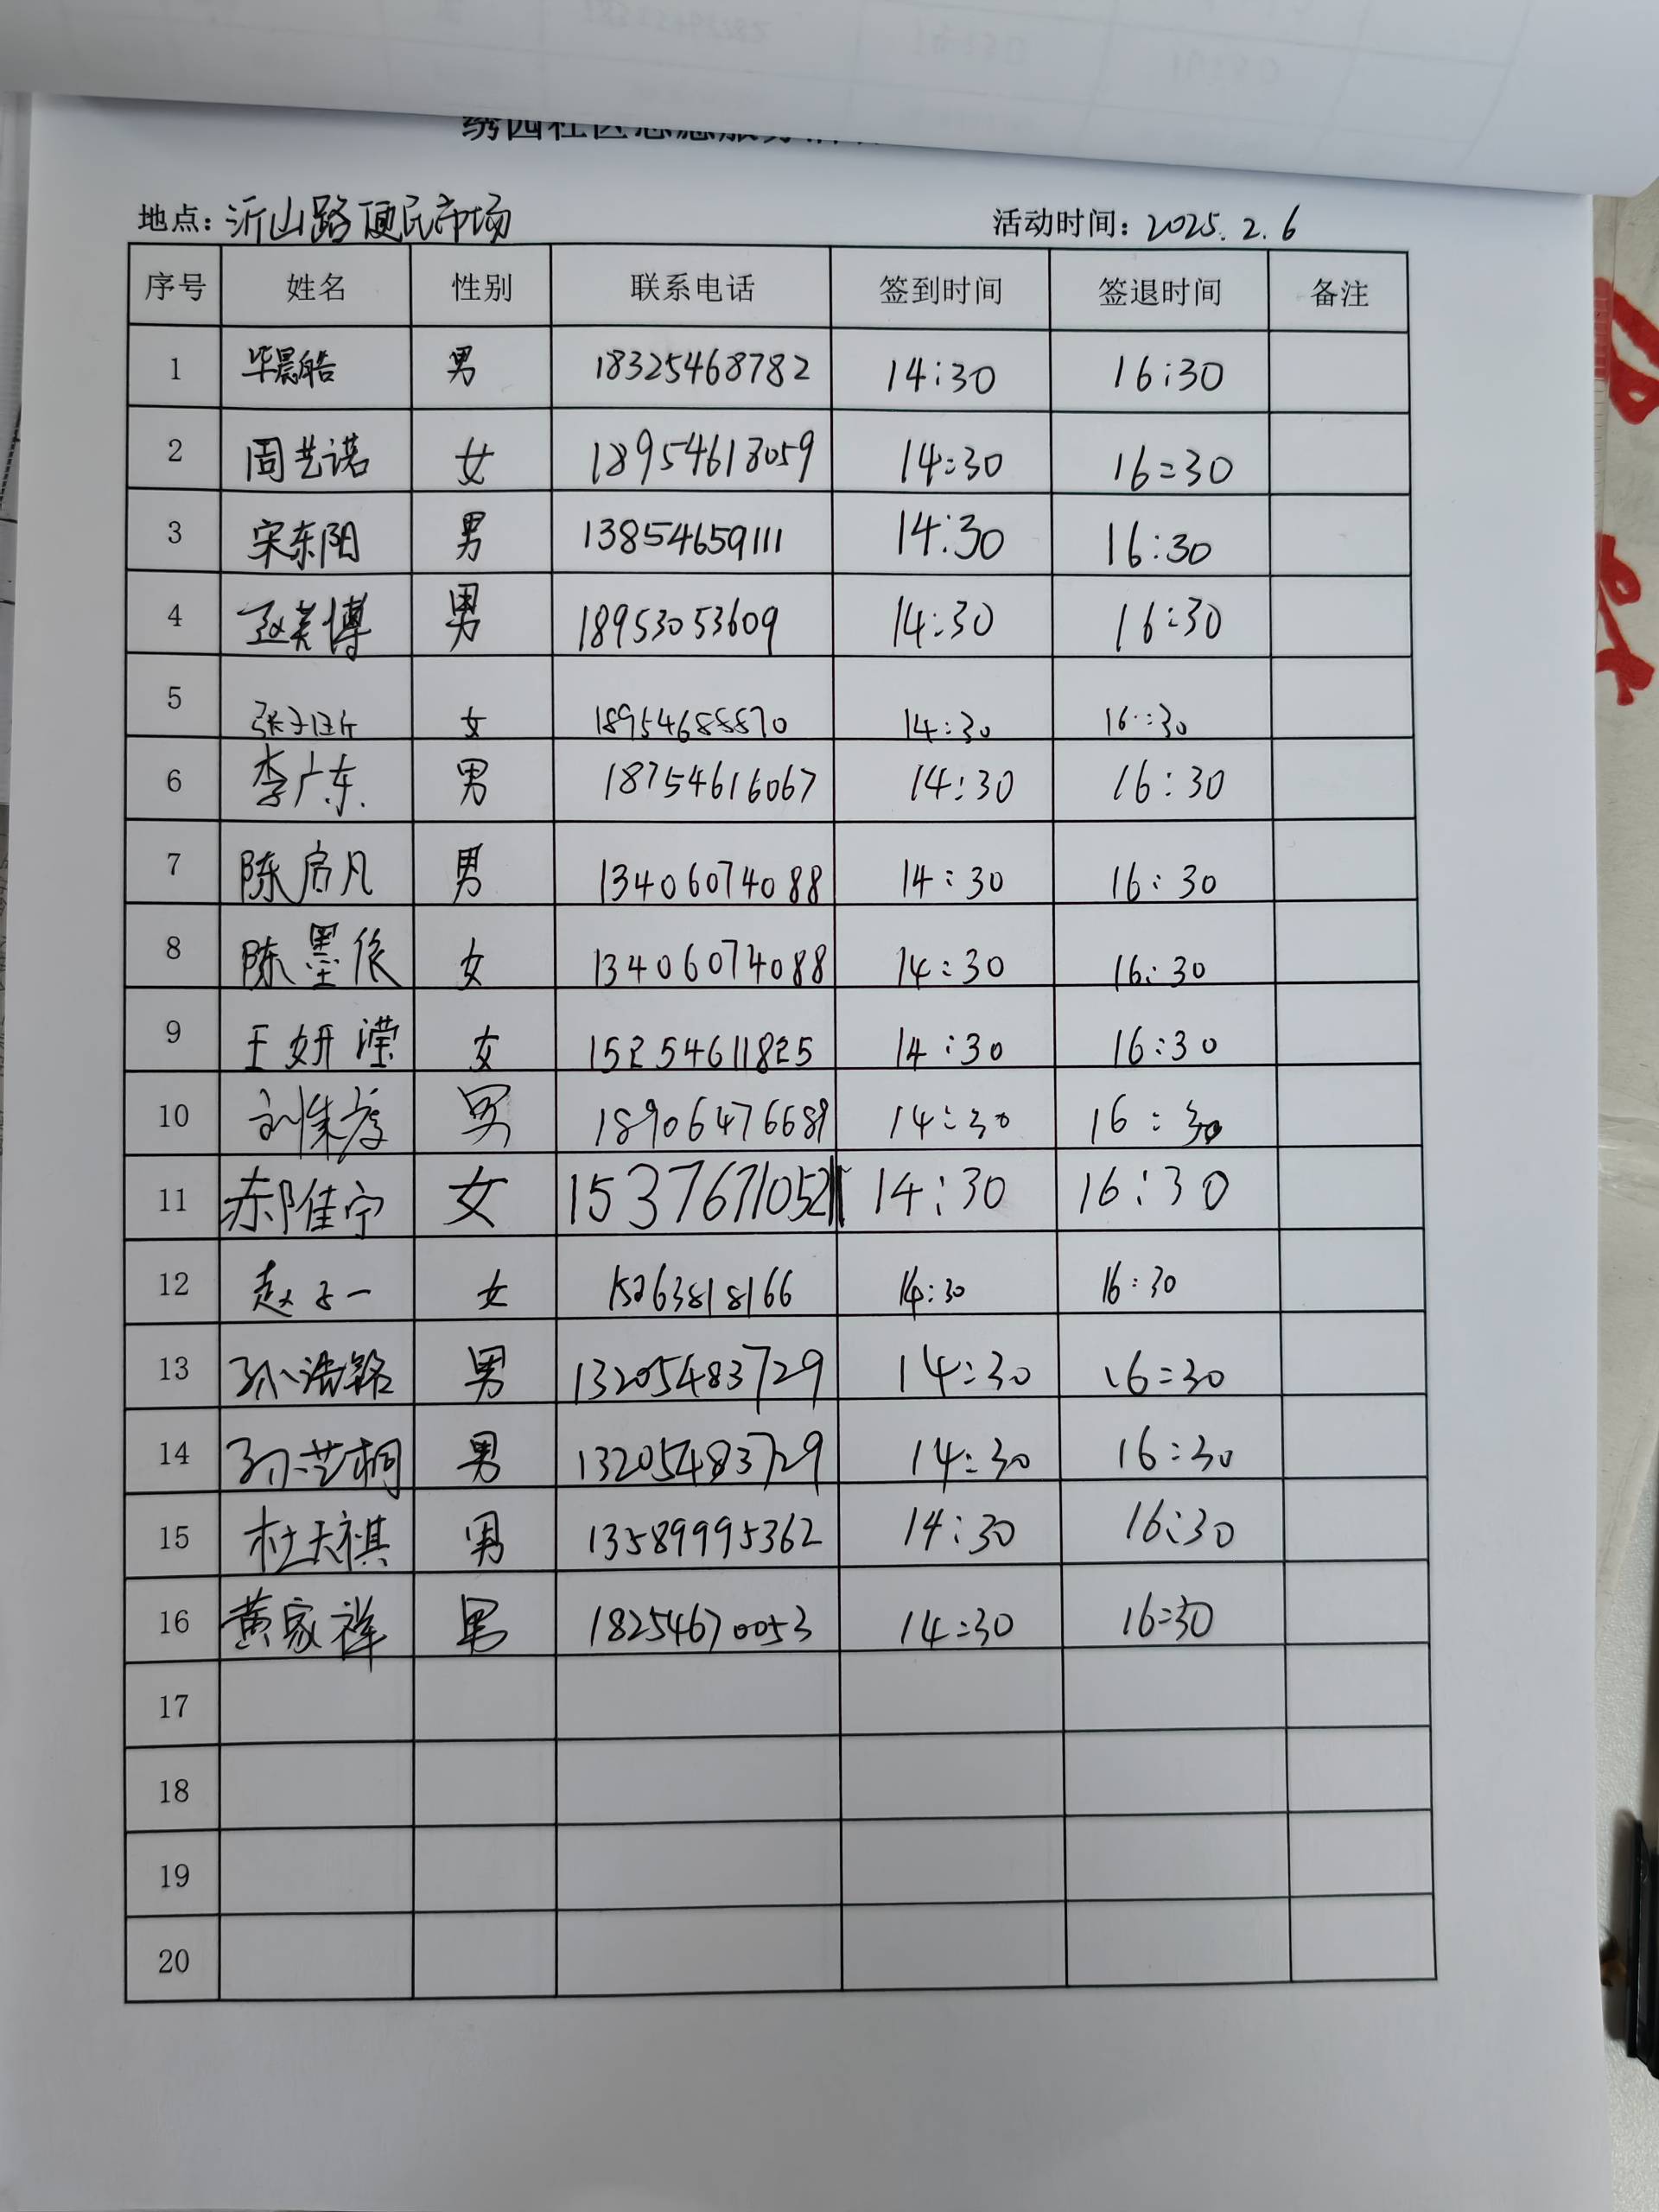 绣园社区志愿服务活动
地点：沂山路便民市场 活动时间：2025.2.6
序号 姓名 性别 联系电话 签到时间 签退时间 备注
1 毕晨皓 男 18325468782 14:30 16:30
2 周艺诺 女 18954618059 14:30 16:30
3 宋东阳 男 13854659111 14:30 16:30
4 男 18953053609 14:30 16:30
5 女 14:30 16:30
6 李广东 男 18754616067 14:30 16:30
7 陈启凡 男 13406074088 14:30 16:30
8 陈墨依 女 13406074088 14:30 16:30
9 王妍滢 女 15254611825 14:30 16:30
10 男 18906476689 14:30 16:30
11 女 14:30 16:30
12 赵子一 女 15263818166 14:30 16:30
13 孙浩铭 男 13205483729 14:30 16:30
14 孙艺桐 男 13205483729 14:30 16:30
15 杜天祺 男 13589995362 14:30 16:30
16 黄家祥 男 18254670053 14:30 16:30
17
18
19
20